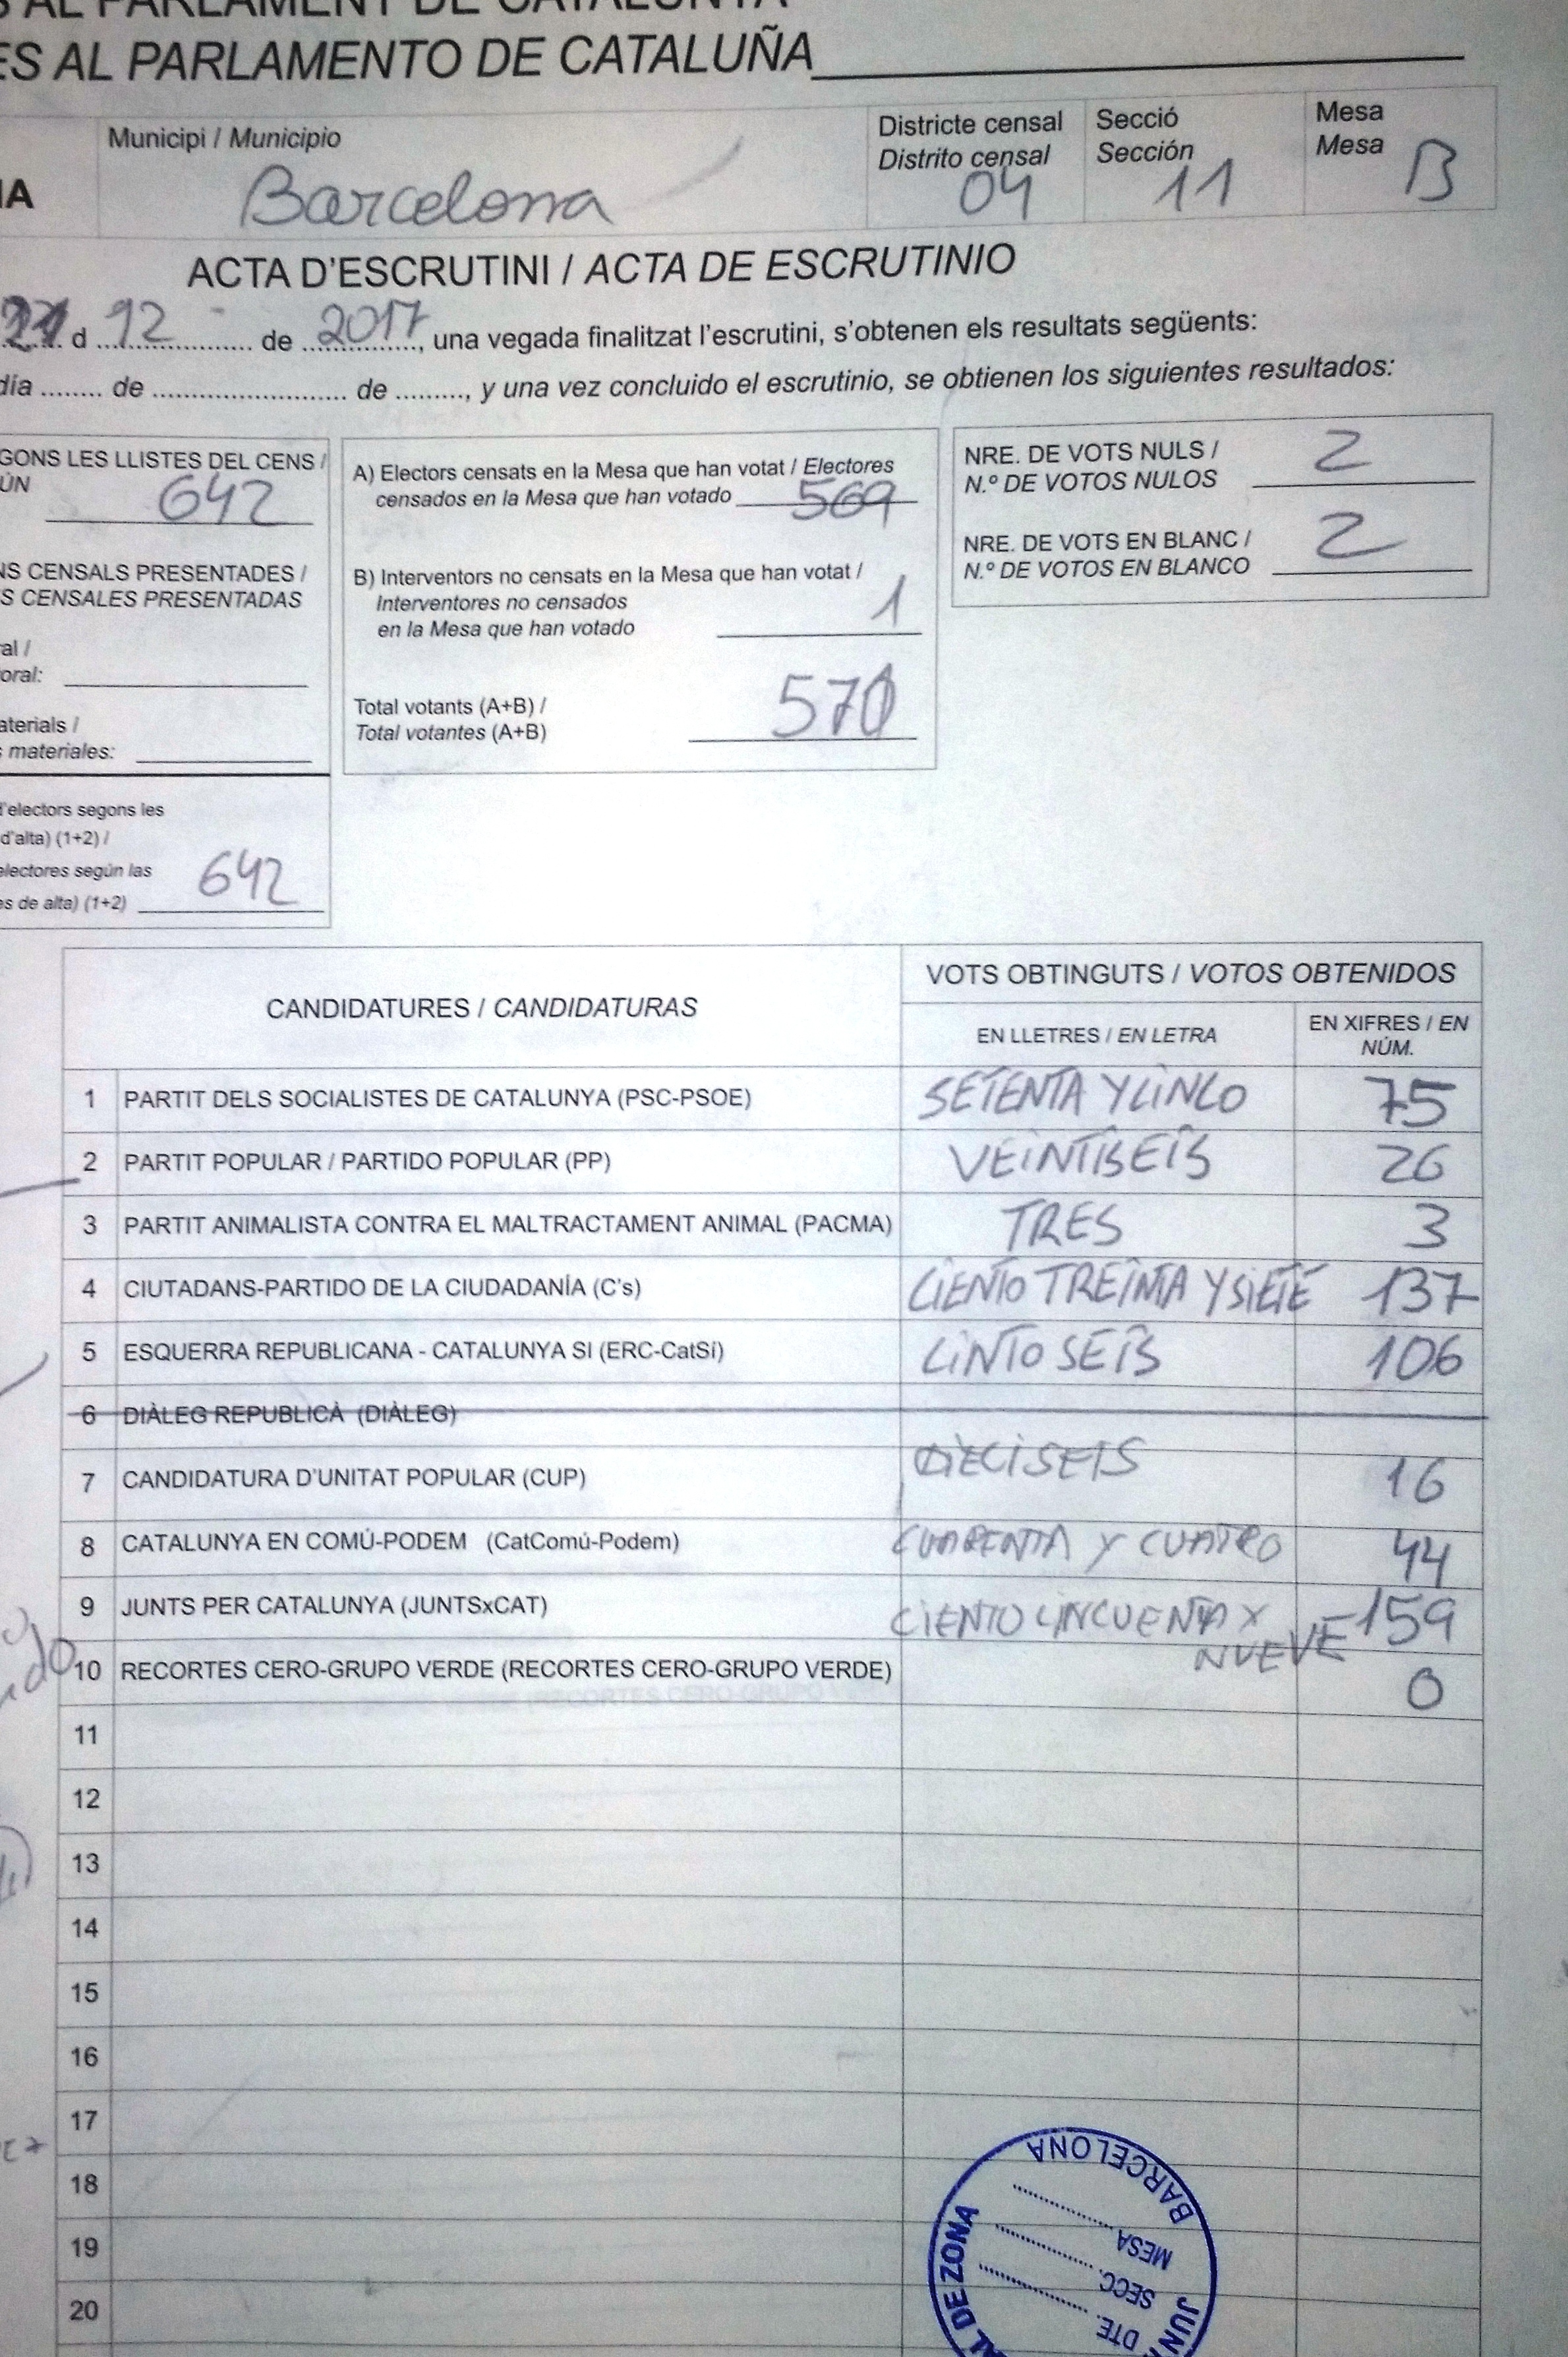 S AL PARLAMENT DE CATALUNYA
ES AL PARLAMENTO DE CATALUÑA
IA
Municipi / Municipio
Barcelona
Districte censal
Distrito censal
04
Secció
Sección
11
Mesa
Mesa
B
ACTA D'ESCRUTINI / ACTA DE ESCRUTINIO
21 d 12 de 2017, una vegada finalitzat l'escrutini, s'obtenen els resultats següents:
día ........ de .......................... de ........., y una vez concluido el escrutinio, se obtienen los siguientes resultados:
GONS LES LLISTES DEL CENS /
ÚN 642
NS CENSALS PRESENTADES /
S CENSALES PRESENTADAS
ral /
oral:
aterials /
s materiales:
d'electors segons les
d'alta) (1+2) /
electores según las
es de alta) (1+2) 642
A) Electors censats en la Mesa que han votat / Electores
censados en la Mesa que han votado 569
B) Interventors no censats en la Mesa que han votat /
Interventores no censados
en la Mesa que han votado 1
Total votants (A+B) /
Total votantes (A+B) 570
NRE. DE VOTS NULS /
N.º DE VOTOS NULOS 2
NRE. DE VOTS EN BLANC /
N.º DE VOTOS EN BLANCO 2
CANDIDATURES / CANDIDATURAS
VOTS OBTINGUTS / VOTOS OBTENIDOS
EN LLETRES / EN LETRA
EN XIFRES / EN
NÚM.
1 PARTIT DELS SOCIALISTES DE CATALUNYA (PSC-PSOE) SETENTA Y CINCO 75
2 PARTIT POPULAR / PARTIDO POPULAR (PP) VEINTISEIS 26
3 PARTIT ANIMALISTA CONTRA EL MALTRACTAMENT ANIMAL (PACMA) TRES 3
4 CIUTADANS-PARTIDO DE LA CIUDADANÍA (C's) CIENTO TREINTA Y SIETE 137
5 ESQUERRA REPUBLICANA - CATALUNYA SI (ERC-CatSí) CINTO SEIS 106
6 DIÀLEG REPUBLICÀ (DIÀLEG)
7 CANDIDATURA D'UNITAT POPULAR (CUP) DIECISEIS 16
8 CATALUNYA EN COMÚ-PODEM (CatComú-Podem) CUARENTA Y CUATRO 44
9 JUNTS PER CATALUNYA (JUNTSxCAT) CIENTO CINCUENTA Y NUEVE 159
10 RECORTES CERO-GRUPO VERDE (RECORTES CERO-GRUPO VERDE) 0
11
12
13
14
15
16
17
18
19
20
BARCELONA
MESA
SECC.
DTE.
AL DE ZONA
JUN